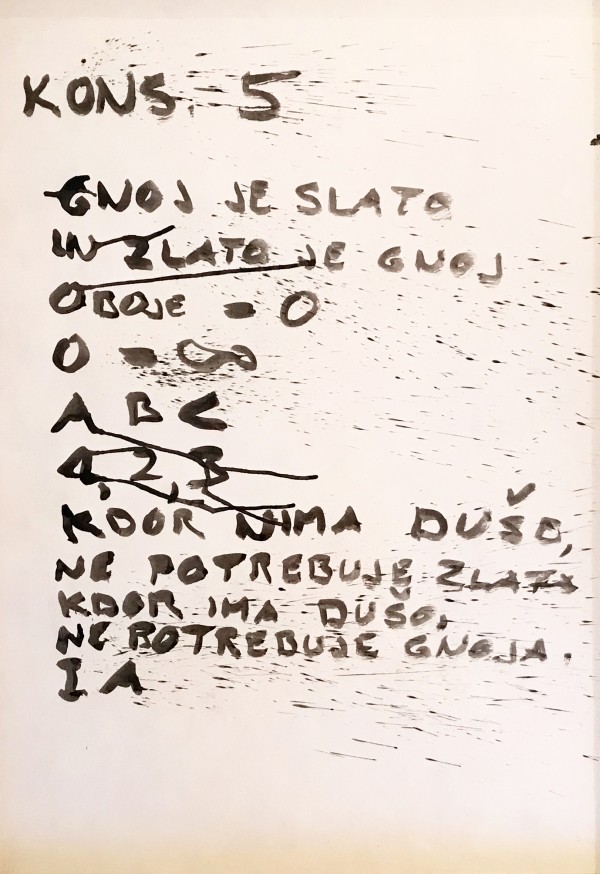 KONS. 5
GNOJ JE SLATO
IN ZLATO JE GNOJ
OBOJE = 0
0 = ∞
A B C
1, 2, 3
KDOR NIMA DUŠO,
NE POTREBUJE ZLATA
KDOR IMA DUŠO,
NE POTREBUJE GNOJA.
I A